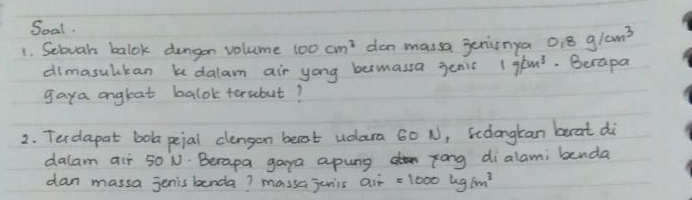 Soal.
1. Sebuah balok dengan volume 100 cm³ dan massa jenisnya 0,8 g/cm³
dimasukkan ke dalam air yang bermassa jenis 1 g/cm³. Berapa
gaya angkat balok tersebut ?
2. Terdapat bola pejal dengan berat udara 60 N, sedangkan berat di
dalam air 50 N. Berapa gaya apung yang di alami benda
dan massa jenis benda ? massa jenis air = 1000 kg/m³